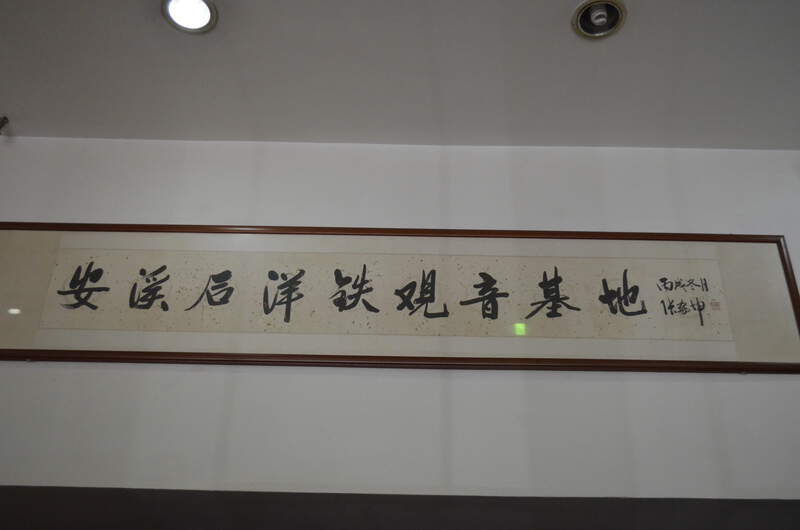 安溪后洋铁观音基地
丙戌冬月